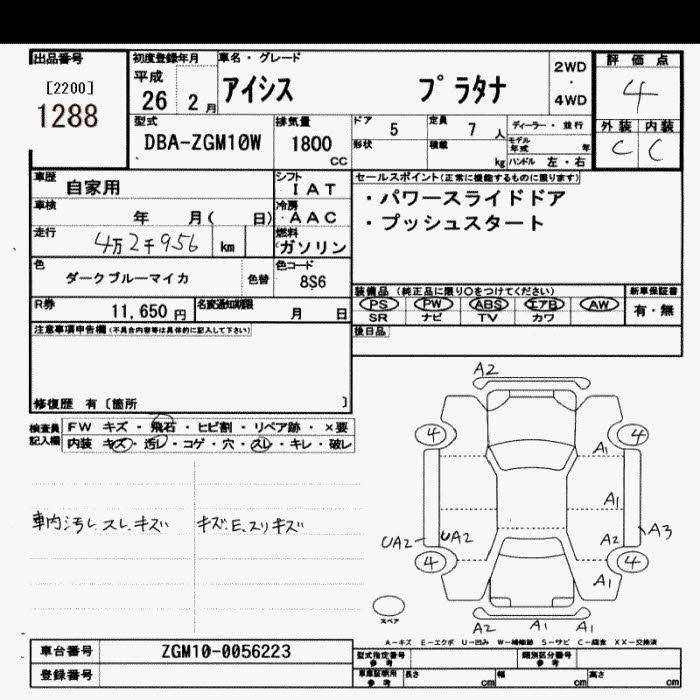 出品番号
[2200]
1288
初度登録年月
平成
26 2月
車名・グレード
アイシス プラタナ
2WD
・
4WD
評価点
4
外装 内装
C C
型式
DBA-ZGM10W
排気量
1800
CC
ドア
5
定員
7人
ディーラー・並行
形状
積載
kg
モデル年式 年
ハンドル 左・右
車歴
自家用
シフト
IAT
車検
年 月( 日)
冷房
AAC
走行
4万2千956 km
燃料
ガソリン
色
ダークブルーマイカ
色替
色コード
8S6
R券
11,650円
名変通知期限
月 日
セールスポイント(正常に機能するものに限ります)
・パワースライドドア
・プッシュスタート
装備品 (純正品に限り○をつけてください)
PS PW ABS エアB AW
SR ナビ TV カワ
新車保証書
有・無
後日品
注意事項申告欄(不具合内容等は具体的に記入して下さい)
修復歴 有〔箇所 〕
検査員記入欄
FW キズ・飛石・ヒビ割・リペア跡・×要
内装 キズ・汚レ・コゲ・穴・スレ・キレ・破レ
車内汚レ、スレ、キズ キズ、E、スリキズ
A2
4 4
A1
A1
UA2 UA2 A2 A3
4 4
A1
A2 A1 A1
スペア
A-キズ E-エクボ U-凹み W-補修跡 S-サビ C-腐食 XX-交換済
車台番号
ZGM10-0056223
登録番号
型式指定番号
参考
類別区分番号
参考
車庫証明用
参考
長さ cm 幅 cm 高さ cm